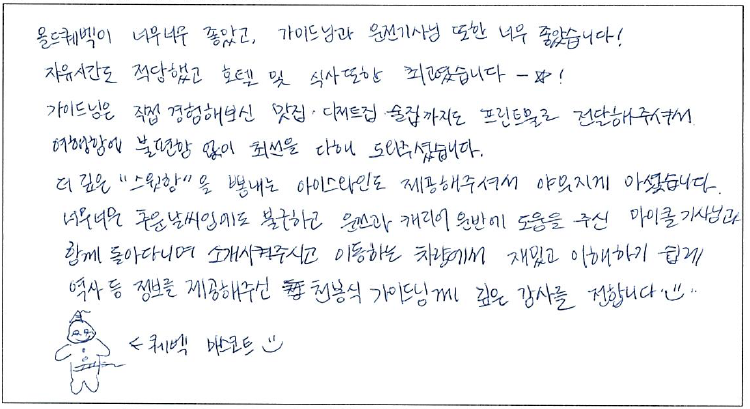 올드퀘벡이 너무너무 좋았고, 가이드님과 운전기사님 또한 너무 좋았습니다!
자유시간도 적당했고 호텔 및 식사또한 최고였습니다 -☆!
가이드님은 직접 경험해보신 맛집·디저트집 술집까지도 프린트물로 전달해주셔서
여행함에 불편함 없이 최선을 다해 도와주셨습니다.
더 깊은 "스윗함"을 뽐내는 아이스와인도 제공해주셔서 야무지게 마셨습니다.
너무너무 추운날씨임에도 불구하고 운전과 캐리어 운반에 도움을 주신 마이클기사님과
함께 돌아다니며 소개시켜주시고 이동하는 차량에서 재밌고 이해하기 쉽게
역사 등 정보를 제공해주신 천봉식 가이드님께 깊은 감사를 전합니다
← 퀘벡 마스코트